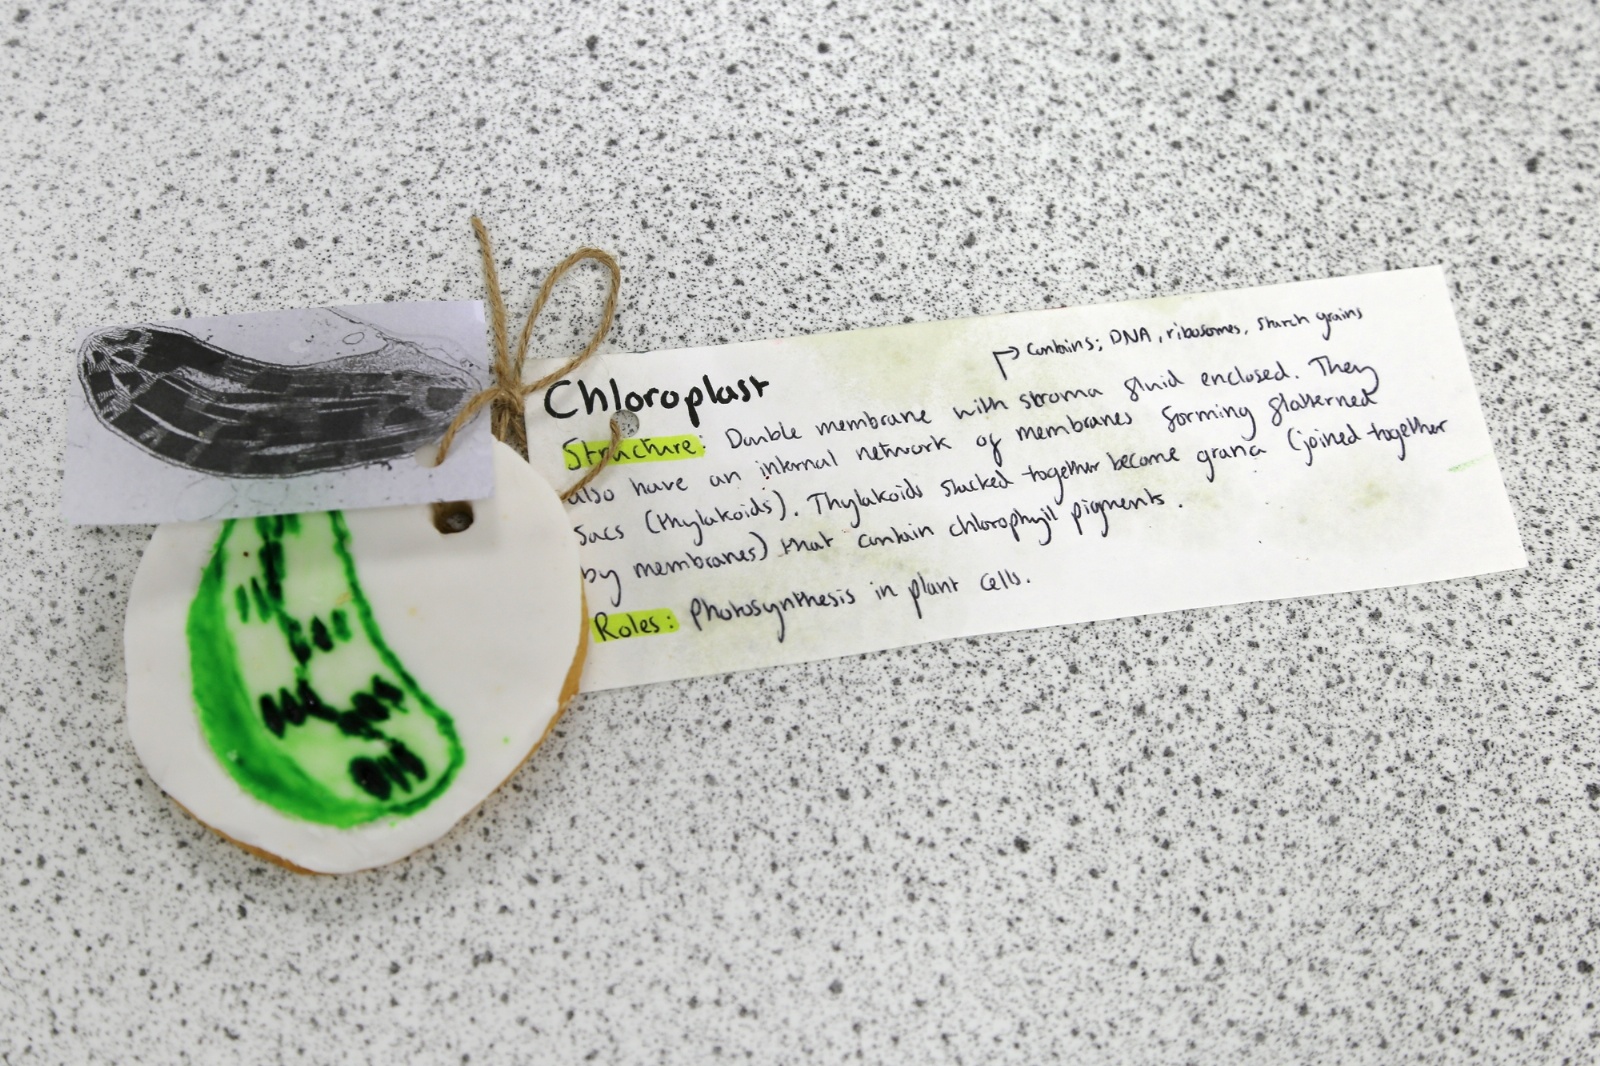 Contains; DNA, ribosomes, starch grains
Chloroplast
Structure: Double membrane with stroma fluid enclosed. They
also have an internal network of membranes forming flatterned
sacs (thylakoids). Thylakoids stacked together become grana (joined together
by membranes) that contain chlorophyll pigments.
Roles: Photosynthesis in plant cells.